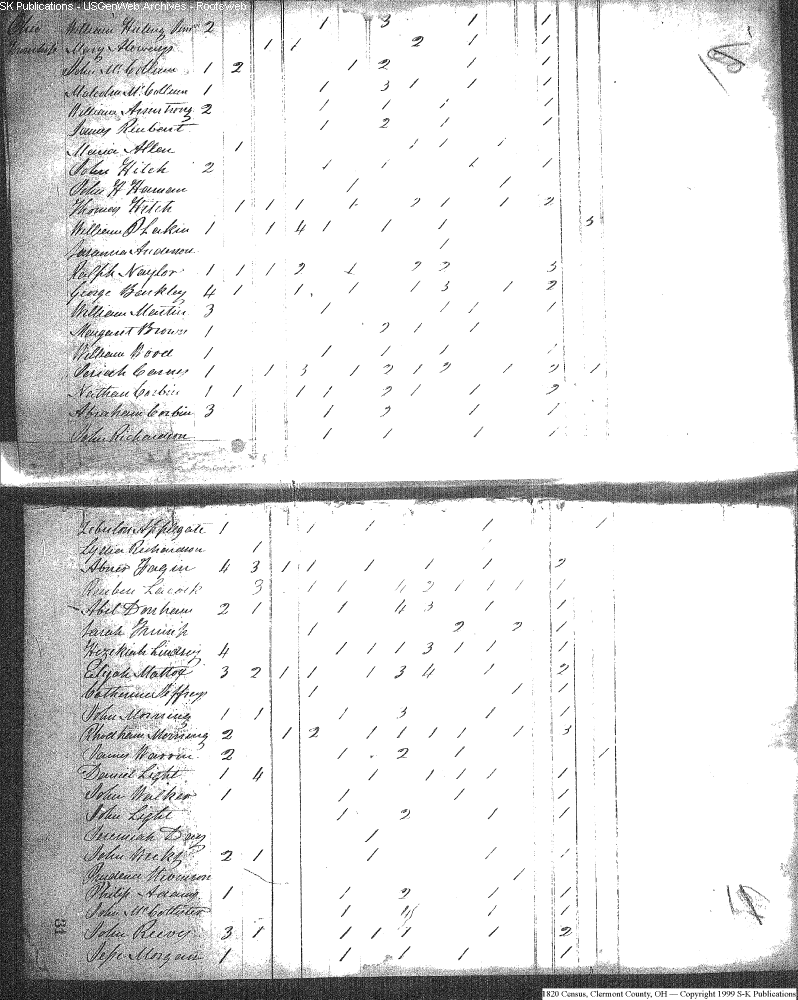 SK Publications - USGenWeb Archives - Rootsweb
Ohio William Hulong Sen 2 1 3 1 1
Township Mary 1 1 2 1 1
John McCollum 1 2 1 2 1 1
Malcolm McCollum 1 1 3 1 1 1
William Armstrong 2 1 1 1 1
James Rinbert 1 2 1
Maria Allen 1 1 1 1
John Hitch 2 1 1 1 1
John H Harman 1 1
Thomas Hitch 1 1 1 1 2 1 1 2
William D Larkin 1 1 4 1 1 1 3
Susanna Anderson 1
Ralph Naylor 1 1 1 2 1 2 2 3
George Barkley 4 1 1 1 1 3 1 2
William Martin 3 1 1 1 1
Margaret Brown 1 2 1 1
William Wood 1 1 1 1 1
Josiah 1 1 3 1 2 1 2 1 2 1
Nathan Corbin 1 1 1 1 2 1 1 2
Abraham Corbin 3 1 2 1 1
John Richardson 1 1 1 1
Zebulon Applegate 1 1 1 1 1
Lydia Richardson 1
Abner Fagin 4 3 1 1 1 1 1 2
Reuben Lacock 3 1 1 4 2 1 1 1 1
Abil Donham 2 1 1 4 3 1 1
Sarah 1 2 2 1
Hezekiah Lindsey 4 1 1 1 3 1 1 1
Elijah Mattox 3 2 1 1 1 3 4 1 2
Catherine Jeffreys 1 1 1
John Morening 1 1 1 3 1 1
Rhodham Morening 2 1 2 1 1 1 1 1 3
James Warren 2 1 2 1 1
Daniel Light 1 4 1 1 1 1 1
John Walker 1 1 1 1
John Light 1 2 1 1
Jeremiah Day 1
John 2 1 1 1 1
Prudence 1
Philip Adams 1 1 2 1 1
John McCollister 1 1 1
John Reeves 3 1 1 1 1 1 2
Jesse Morgan 1 1 1 1 1
31
1820 Census, Clermont County, OH — Copyright 1999 S-K Publications